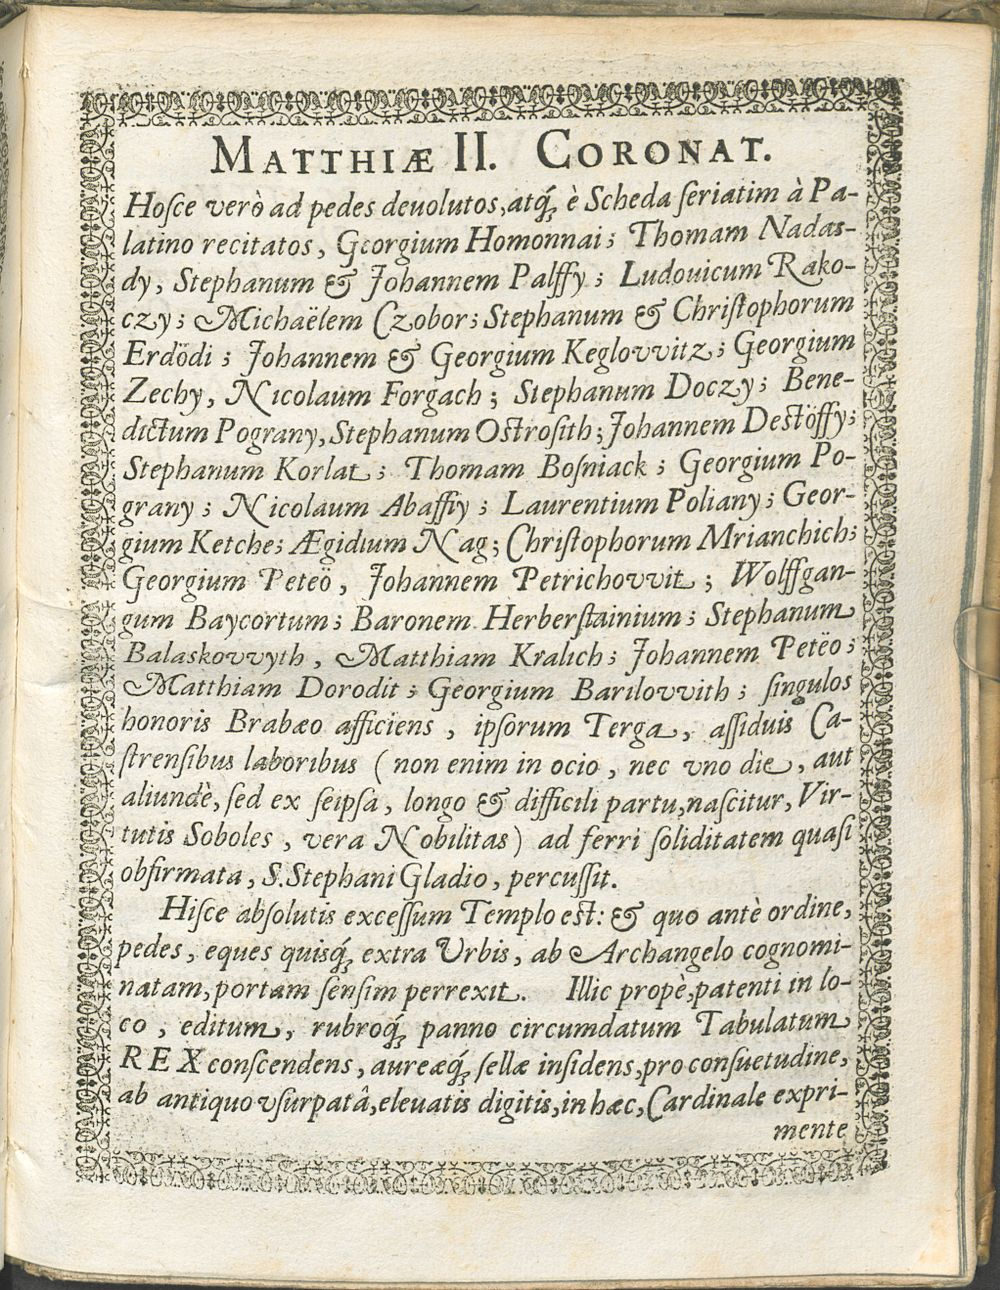 MATTHIÆ II. CORONAT.
Hoſce verò ad pedes deuolutos, atq́; è Scheda ſeriatim à Pa-
latino recitatos, Georgium Homonnai; Thomam Nadas-
dy, Stephanum & Johannem Palffy; Ludouicum Rako-
czy; Michaëlem Czobor; Stephanum & Chriſtophorum
Erdödi; Johannem & Georgium Keglovvitz; Georgium
Zechy, Nicolaum Forgach; Stephanum Doczy; Bene-
dictum Pograny, Stephanum Oſtroſith; Johannem Deſtöffy;
Stephanum Korlat; Thomam Boſniack; Georgium Po-
grany; Nicolaum Abaffiy; Laurentium Poliany; Geor-
gium Ketche; Ægidium Nag; Chriſtophorum Mrianchich;
Georgium Peteö, Johannem Petrichovvit; Wolffgan-
gum Baycortum; Baronem Herberſtainium; Stephanum
Balaskovvyth, Matthiam Kralich; Johannem Petëo;
Matthiam Dorodit; Georgium Barilovvith; ſingulos
honoris Brabæo afficiens, ipſorum Terga, aſſiduis Ca-
ſtrenſibus laboribus (non enim in ocio, nec vno die, aut
aliundè, ſed ex ſeipſa, longo & difficili partu, naſcitur, Vir-
tutis Soboles, vera Nobilitas) ad ferri ſoliditatem quaſi
obfirmata, S. Stephani Gladio, percuſſit.
Hiſce abſolutis exceſſum Templo eſt: & quo antè ordine,
pedes, eques quisq́; extra Urbis, ab Archangelo cognomi-
natam, portam ſenſim perrexit. Illic propè, patenti in lo-
co, editum, rubroq́; panno circumdatum Tabulatum
REX conſcendens, aureæq́; ſellæ inſidens, pro conſuetudine,
ab antiquo vſurpatâ, eleuatis digitis, in hæc, Cardinale expri-
mente